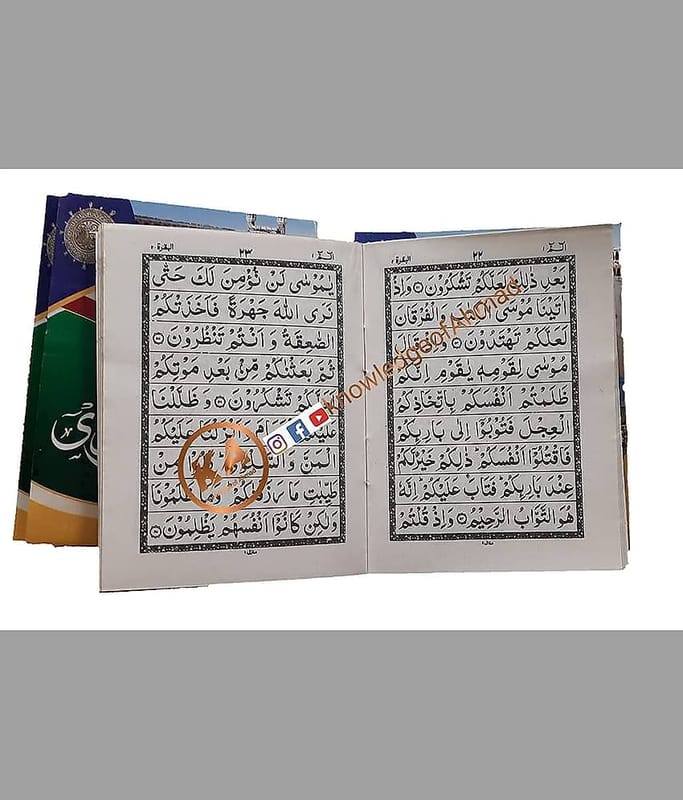 الٓمّٓ ١ ٢٢ البقرة ٢
بَعْدِ ذٰلِكَ لَعَلَّكُمْ تَشْكُرُوْنَ وَاِذْ
اٰتَيْنَا مُوْسَى وَالْفُرْقَانَ
لَعَلَّكُمْ تَهْتَدُوْنَ قَالَ
مُوْسٰى لِقَوْمِهٖ يٰقَوْمِ اِنَّكُمْ
ظَلَمْتُمْ اَنْفُسَكُمْ بِاتِّخَاذِكُمُ
الْعِجْلَ فَتُوْبُوْٓا اِلٰى بَارِئِكُمْ
فَاقْتُلُوْٓا اَنْفُسَكُمْ ذٰلِكُمْ خَيْرٌ لَّكُمْ
عِنْدَ بَارِئِكُمْ فَتَابَ عَلَيْكُمْ اِنَّهٗ
هُوَ التَّوَّابُ الرَّحِيْمُ وَاِذْ قُلْتُمْ
الٓمّٓ ١ ٢٣ البقرة ٢
يٰمُوْسٰى لَنْ نُّؤْمِنَ لَكَ حَتّٰى
نَرَى اللّٰهَ جَهْرَةً فَاَخَذَتْكُمُ
الصّٰعِقَةُ وَ اَنْتُمْ تَنْظُرُوْنَ
ثُمَّ بَعَثْنٰكُمْ مِّنْ بَعْدِ مَوْتِكُمْ
تَشْكُرُوْنَ وَ ظَلَّلْنَا
عَلَيْكُمْ
الْمَنَّ وَ مِنْ
طَيِّبٰتِ مَا رَزَقْنٰكُمْ وَمَا ظَلَمُوْنَا
وَلٰكِنْ كَانُوْٓا اَنْفُسَهُمْ يَظْلِمُوْنَ
knowledgeofAhmad